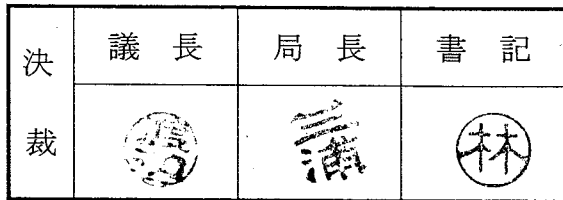 決裁
議長 局長 書記
林